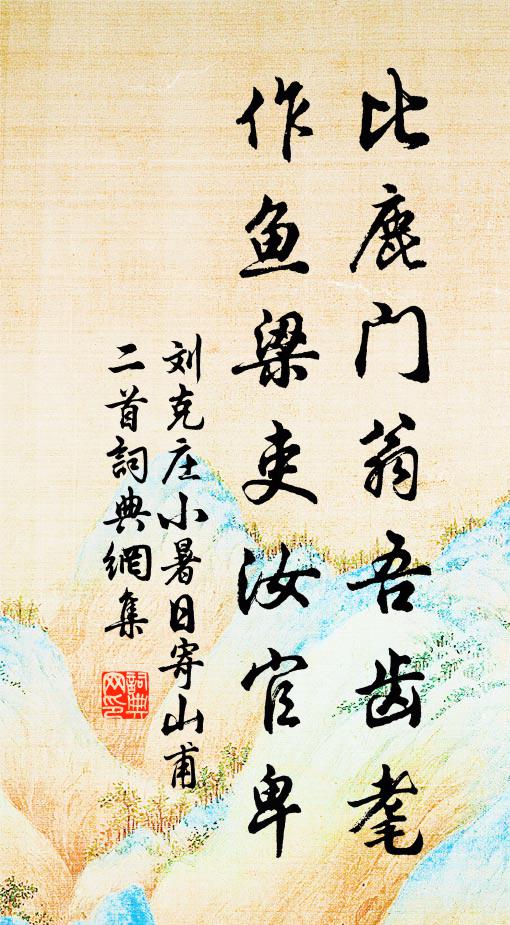 比鹿门翁吾齿耄
作鱼梁吏汝官卑
刘克庄小暑日寄山甫
二首詞典網集
詞典
网印